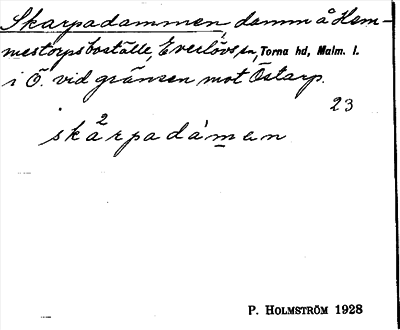 Skarpadammen, damm å Hem-
mestorps boställe, Everlövs sn, Torna hd, Malm. l.
i Ö. vid gränsen mot Östarp.
23
2
skarpadám̲en
P. HOLMSTRÖM 1928